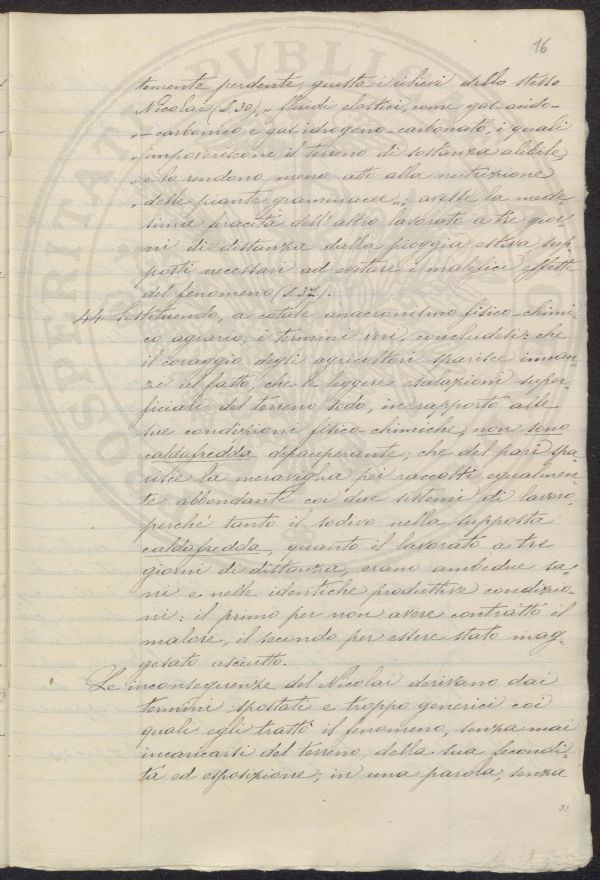 16
temente perdente, giusta i rilievi dello stesso
Nicolai (§. 30), „ fluidi elastici, come gas acido-
„ -carbonico e gas idrogeno-carbonato, i quali
„ impoveriscono il terreno di sostanza alibile,
„ e lo rendono meno atto alla nutrizione
„ delle piante graminacee „; avesse la mede-
sima feracità dell'altro lavorato a tre gior-
ni di distanza dalla pioggia estiva, sup-
posti necessari ad evitare i malefici effetti
del fenomeno (§. 37).
44 Sostituendo, a cotale anacronismo fisico-chimi-
co agrario, i termini veri, concludesi: che
il coraggio degli agricoltori sparisce innan-
zi al fatto, che le leggere esalazioni super-
ficiali del terreno sodo, in rapporto alle
sue condizioni fisico-chimiche, non sono
caldafredda depauperante; che del pari spa-
risce la meraviglia pei raccolti egualmen-
te abbondanti coi due sistemi di lavoro,
perché tanto il sodivo nella supposta
caldafredda, quanto il lavorato a tre
giorni di distanza, erano ambedue sa-
ni e nelle identiche produttive condizio-
ni: il primo per non avere contratto il
malore, il secondo per essere stato mag-
gesato asciutto.
Le inconseguenze del Nicolai derivano dai
termini spostati e troppo generici coi
quali egli trattò il fenomeno, senza mai
incaricarsi del terreno, della sua fecondi-
tà ed esposizione; in una parola, senza
PROSPERITATI PVBLIC